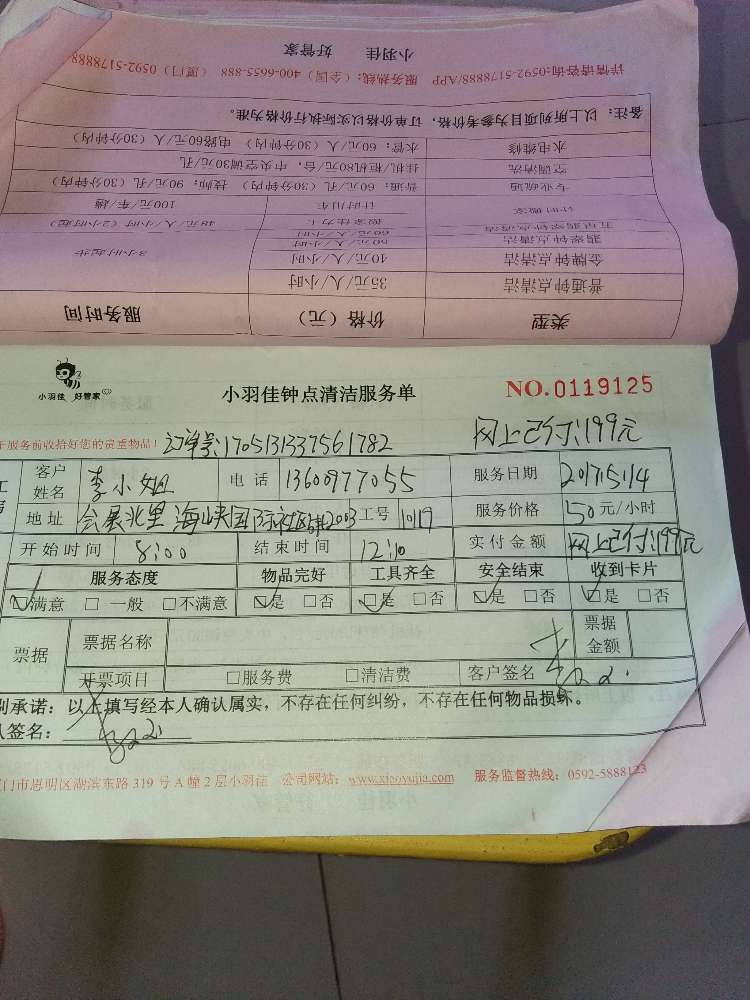 小羽佳 好管家
详情请咨询:0592-5178888/APP 服务热线:(全国) 400-6655-888 (厦门) 0592-5178888
备注:以上所列项目为参考价格,订单价格以实际执行价格为准。
水电维修 水管:60元/人 (30分钟内) 电路60元/人 (30分钟内)
空调清洗 挂机/柜机80元/台,中央空调30元/孔
专业疏通 普通:60元/孔 (30分钟内) 技师:90元/孔 (30分钟内)
计时搬家 计时用车 100元/车/趟
搬家佳力工 48元/人/小时 (2小时起)
五星翡翠钟点清洁 60元/人/小时
翡翠钟点清洁 50元/人/小时
金牌钟点清洁 40元/人/小时 3小时起步
普通钟点清洁 35元/人/小时
类型 价格(元) 服务时间
小羽佳 好管家
小羽佳钟点清洁服务单 NO.0119125
于服务前收拾好您的贵重物品! 订单号:1705131337561782 网上已付:199元
客户姓名 李小姐 电话 13600977055 服务日期 2017.5.14
地址 会展北里海峡国际社区 2003 工号 1019 服务价格 50元/小时
开始时间 8:00 结束时间 12:10 实付金额 网上已付:199元
服务态度 物品完好 工具齐全 安全结束 收到卡片
☑满意 □一般 □不满意 ☑是 □否 ☑是 □否 ☑是 □否 ☑是 □否
票据 票据名称 票据金额
开票项目 □服务费 □清洁费 客户签名
别承诺:以上填写经本人确认属实,不存在任何纠纷,不存在任何物品损坏。
人签名:
门市思明区湖滨东路 319 号 A 幢 2 层小羽佳 公司网站:www.xiaoyujia.com 服务监督热线:0592-5888123